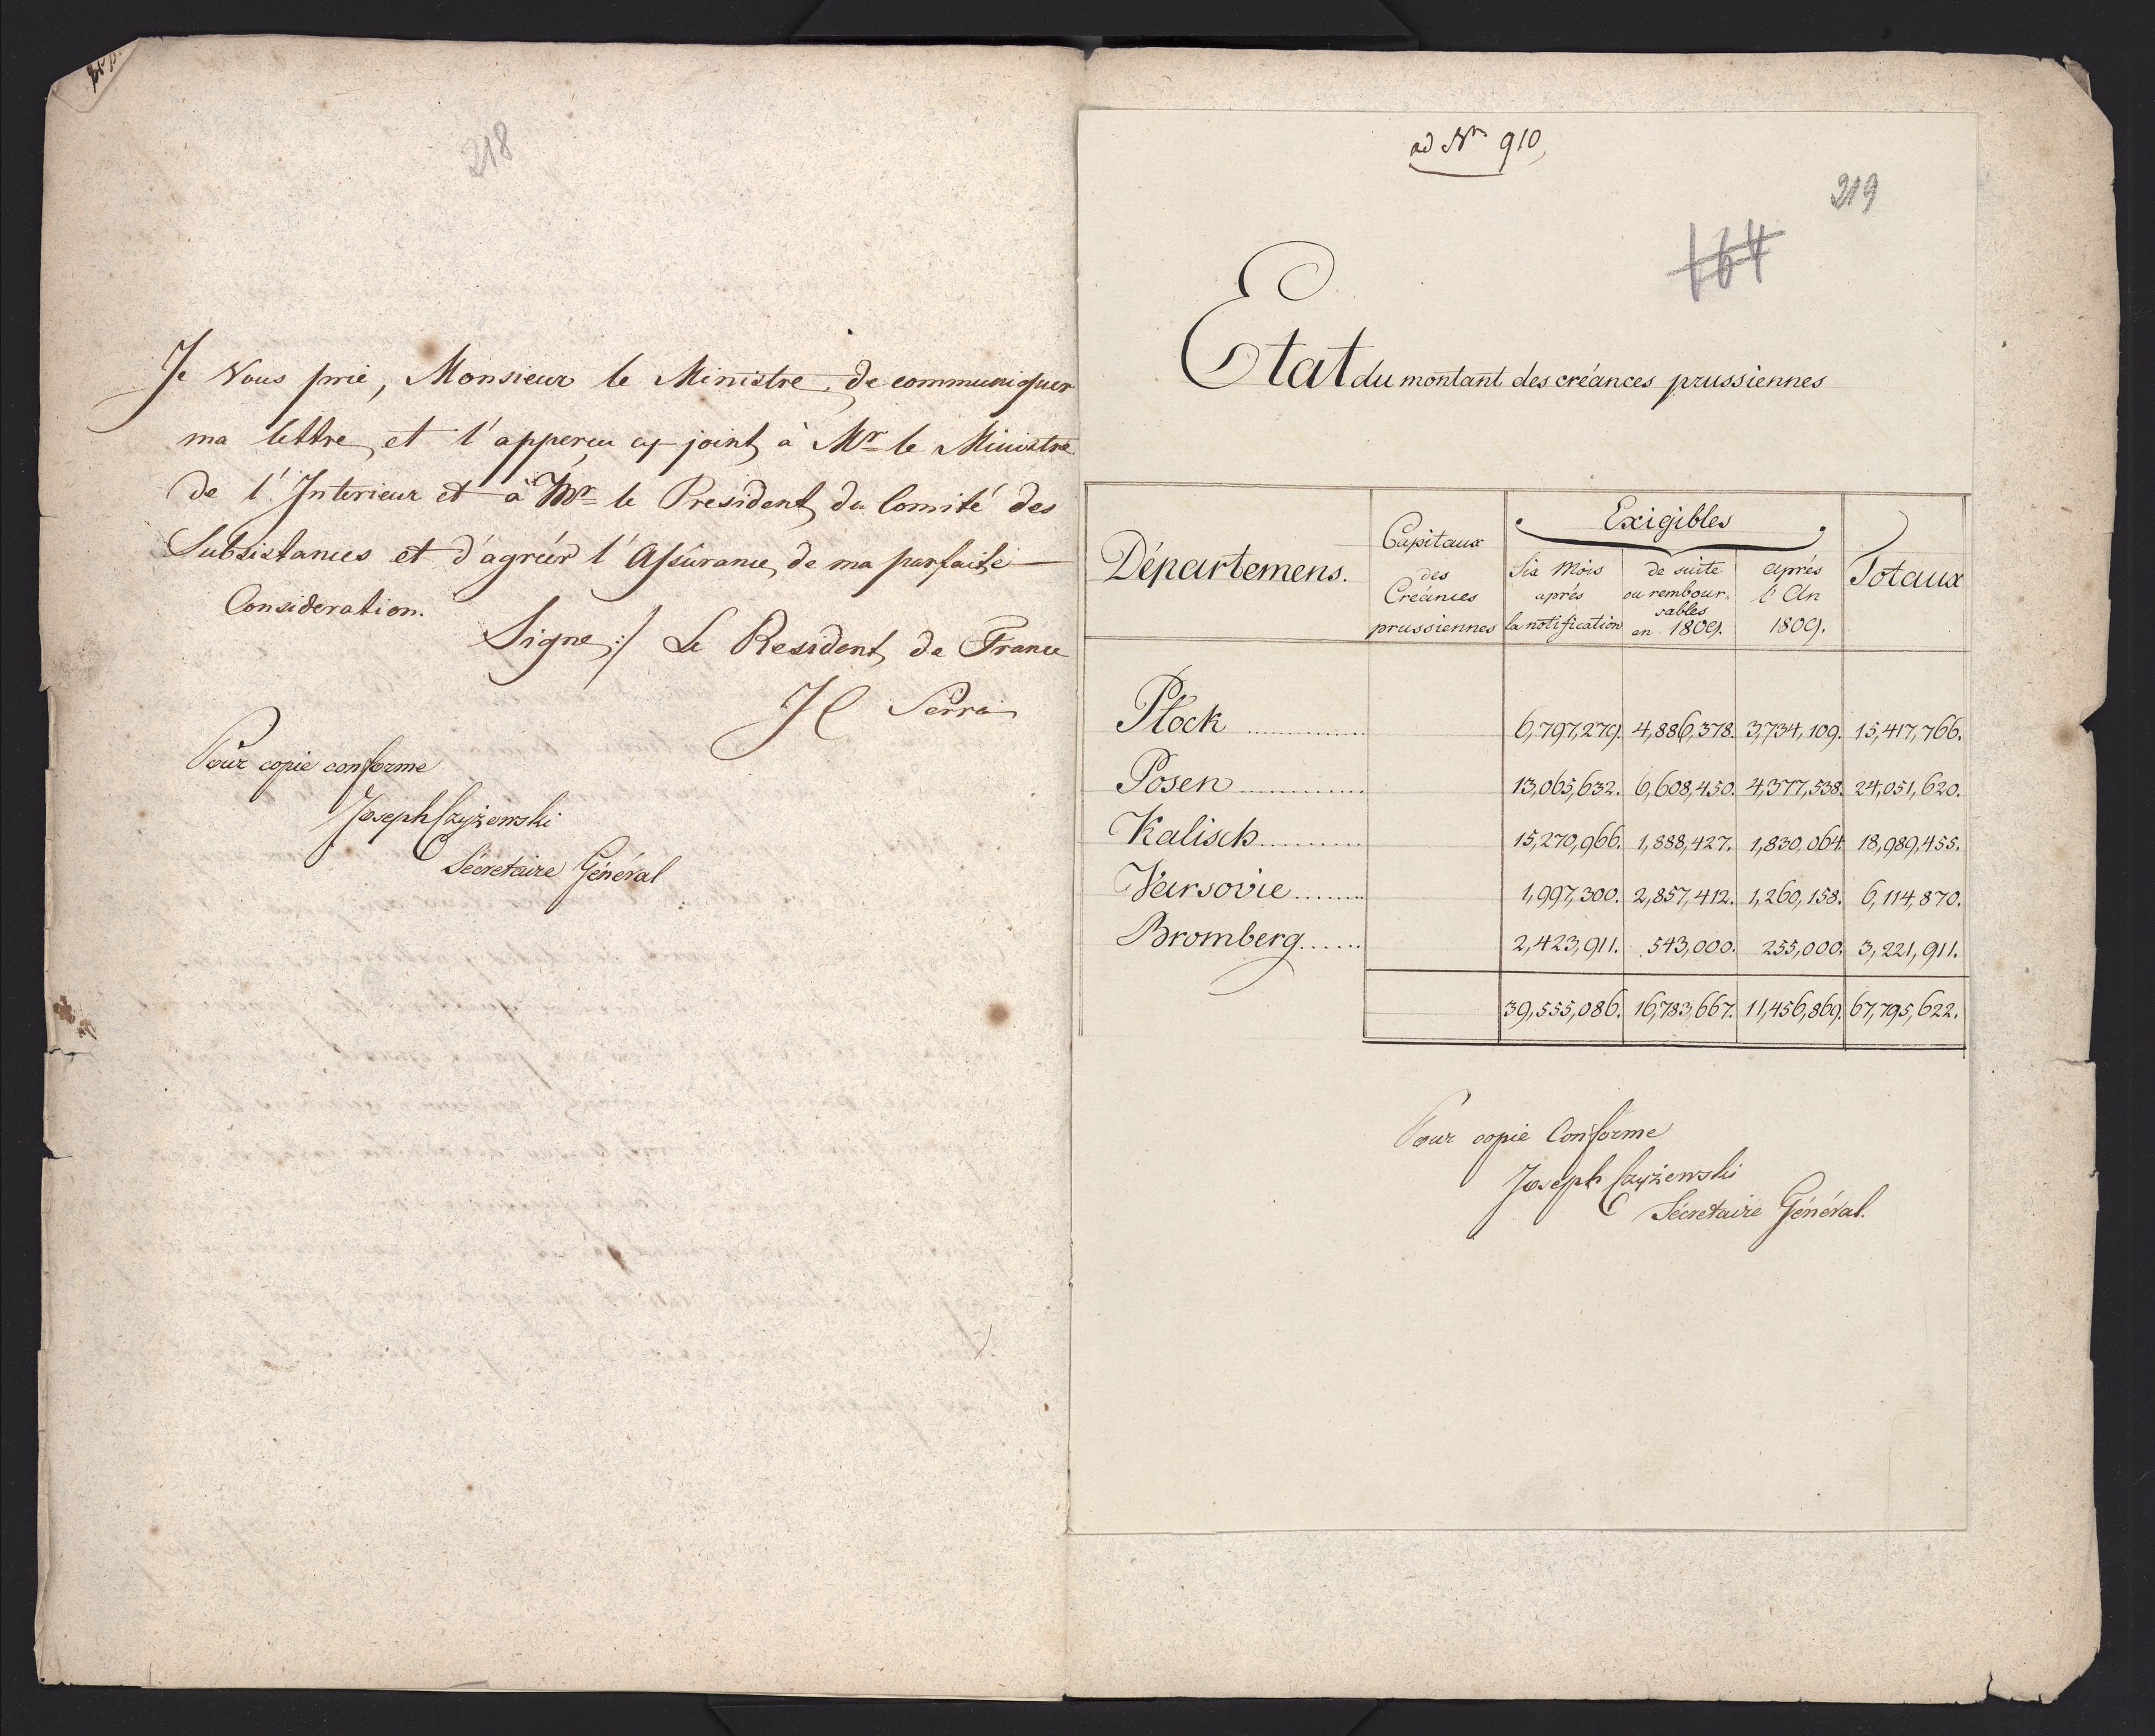 218
Je Vous prie, Monsieur le Ministre, de communiquer
ma lettre, et l'apperçu cy-joint, à Mr le Ministre
de l'Interieur et à Mr le President, du Comité des
Subsistances et d'agréer l'Assurance, de ma parfaite
Consideration.
Signe :/ Le Resident, de France
Serra
Pour copie conforme
Joseph Czyżewski
Sécretaire Général
ad Nr 910,
219
164
Etat du montant des créances prussiennes
Départemens.
Capitaux
des
Créances
prussiennes
Exigibles
Six Mois
après
la notification
de suite
ou rembour-
sables
en 1809.
après
l'An
1809.
Totaux
Płock 6,797,279. 4,886,378. 3,734,109. 15,417,766.
Posen 13,065,632. 6,608,450. 4,377,538. 24,051,620.
Kalisch 15,270,966. 1,888,427. 1,830,064. 18,989,455.
Varsovie 1,997,300. 2,857,412. 1,260,158. 6,114,870.
Bromberg 2,423,911. 543,000. 255,000. 3,221,911.
39,555,086. 16,783,667. 11,456,869. 67,795,622.
Pour copie Conforme
Joseph Czyżewski
Sécretaire Général.